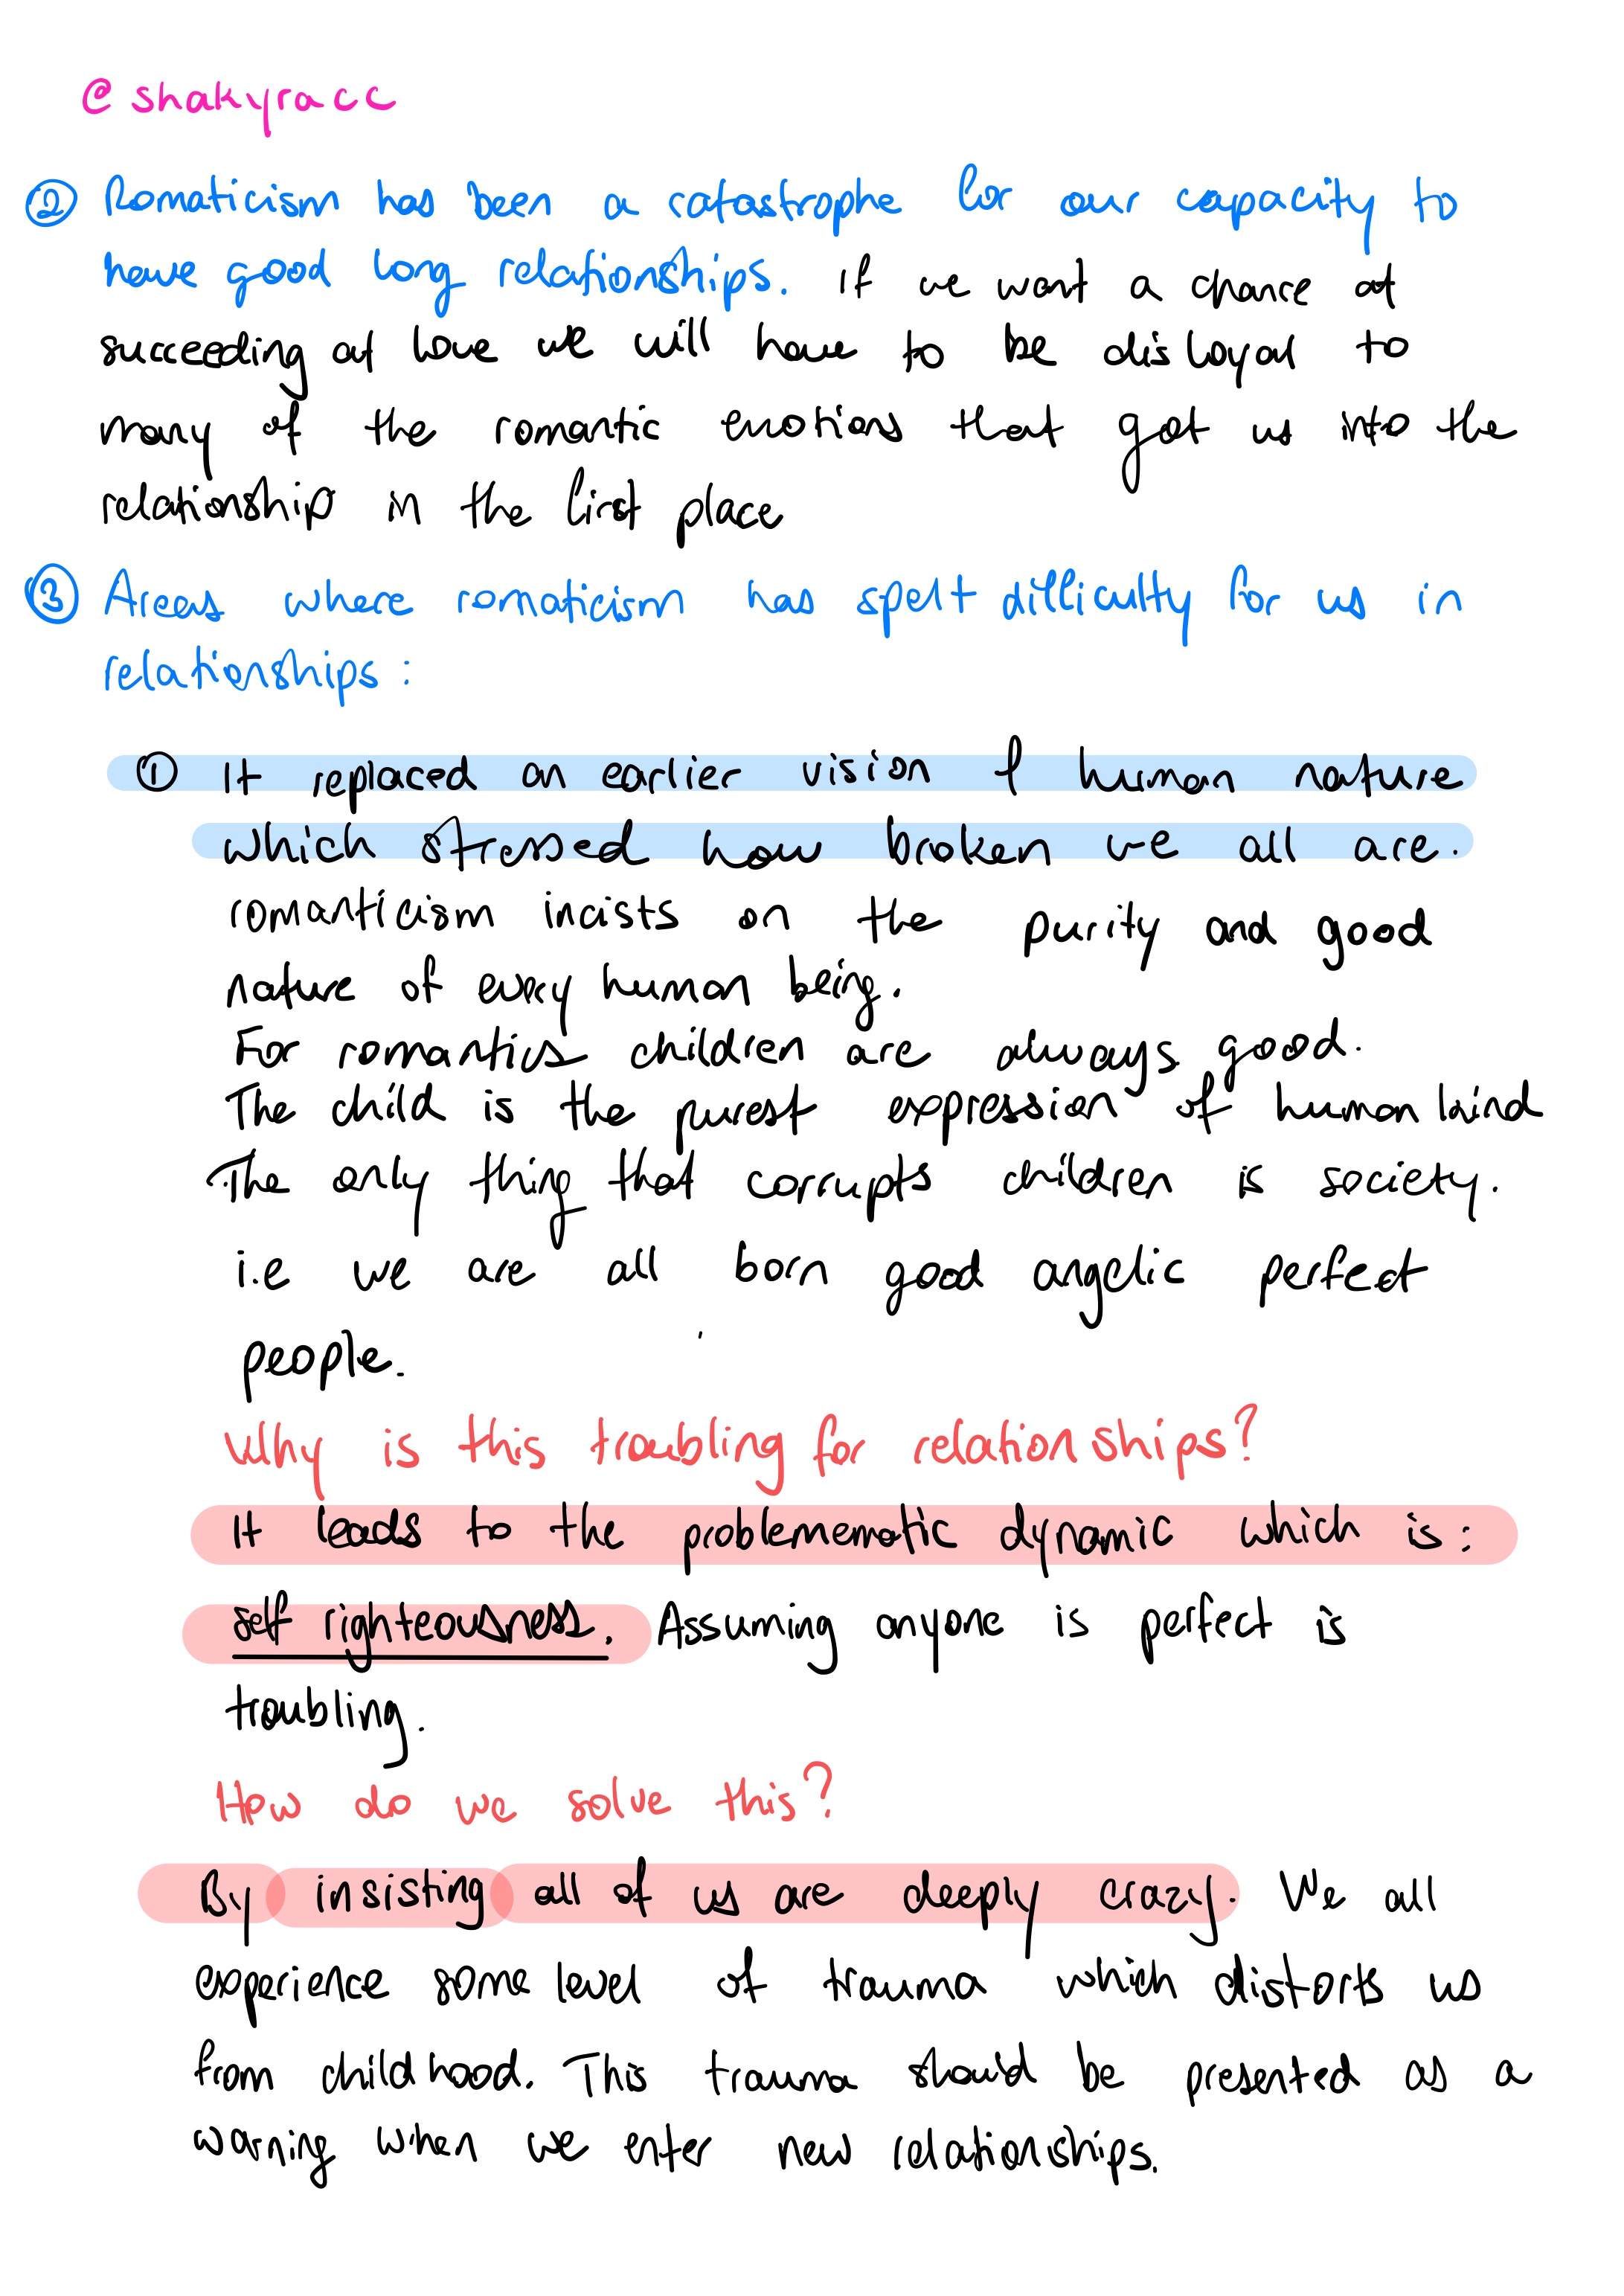 @shakyracc
② Romaticism has been a catastrophe for our capacity to
have good long relationships. if we want a chance at
succeeding at love we will have to be disloyal to
many of the romantic emotions that got us into the
relationship in the first place
③ Areas where romaticism has spelt difficulty for us in
relationships:
① It replaced an earlier vision of human nature
which stressed how broken we all are.
romanticism incists on the purity and good
nature of every human being.
For romantics children are always good.
The child is the purest expression of human kind
The only thing that corrupts children is society.
i.e we are all born good angelic perfect
people.
Why is this troubling for relationships?
It leads to the problemematic dynamic which is:
self righteousness. Assuming anyone is perfect is
troubling.
How do we solve this?
By insisting all of us are deeply crazy. We all
experience some level of trauma which distorts us
from childhood. This trauma should be presented as a
warning when we enter new relationships.